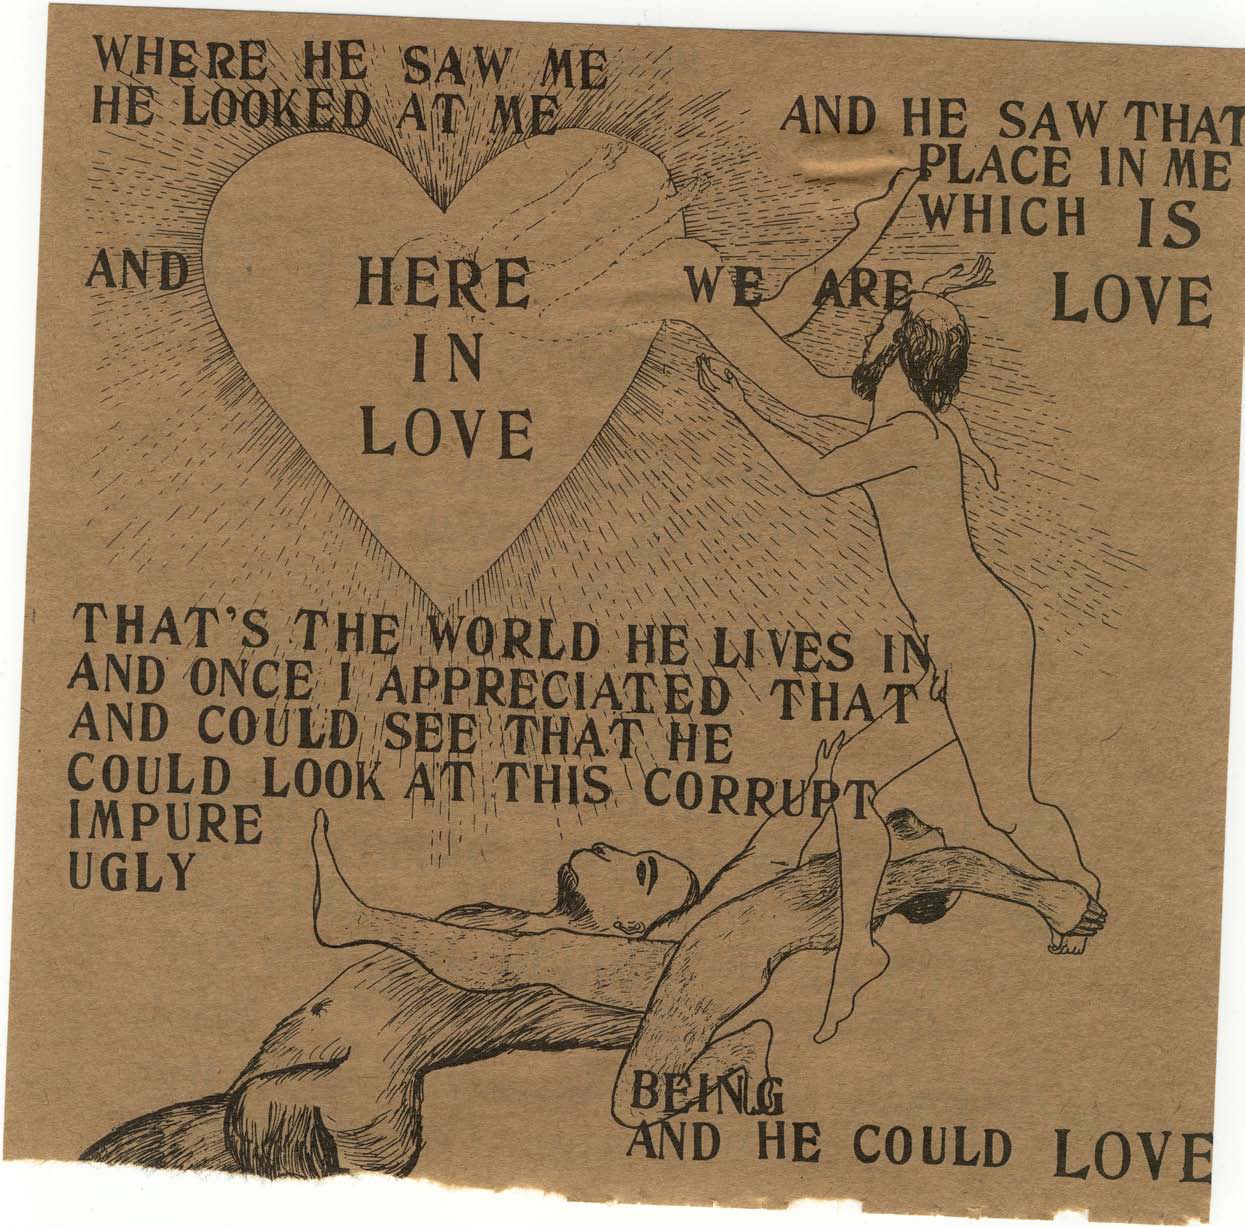 WHERE HE SAW ME
HE LOOKED AT ME
AND HE SAW THAT
PLACE IN ME
WHICH IS
LOVE
AND HERE WE ARE
IN
LOVE
THAT'S THE WORLD HE LIVES IN
AND ONCE I APPRECIATED THAT
AND COULD SEE THAT HE
COULD LOOK AT THIS CORRUPT
IMPURE
UGLY
BEING
AND HE COULD LOVE